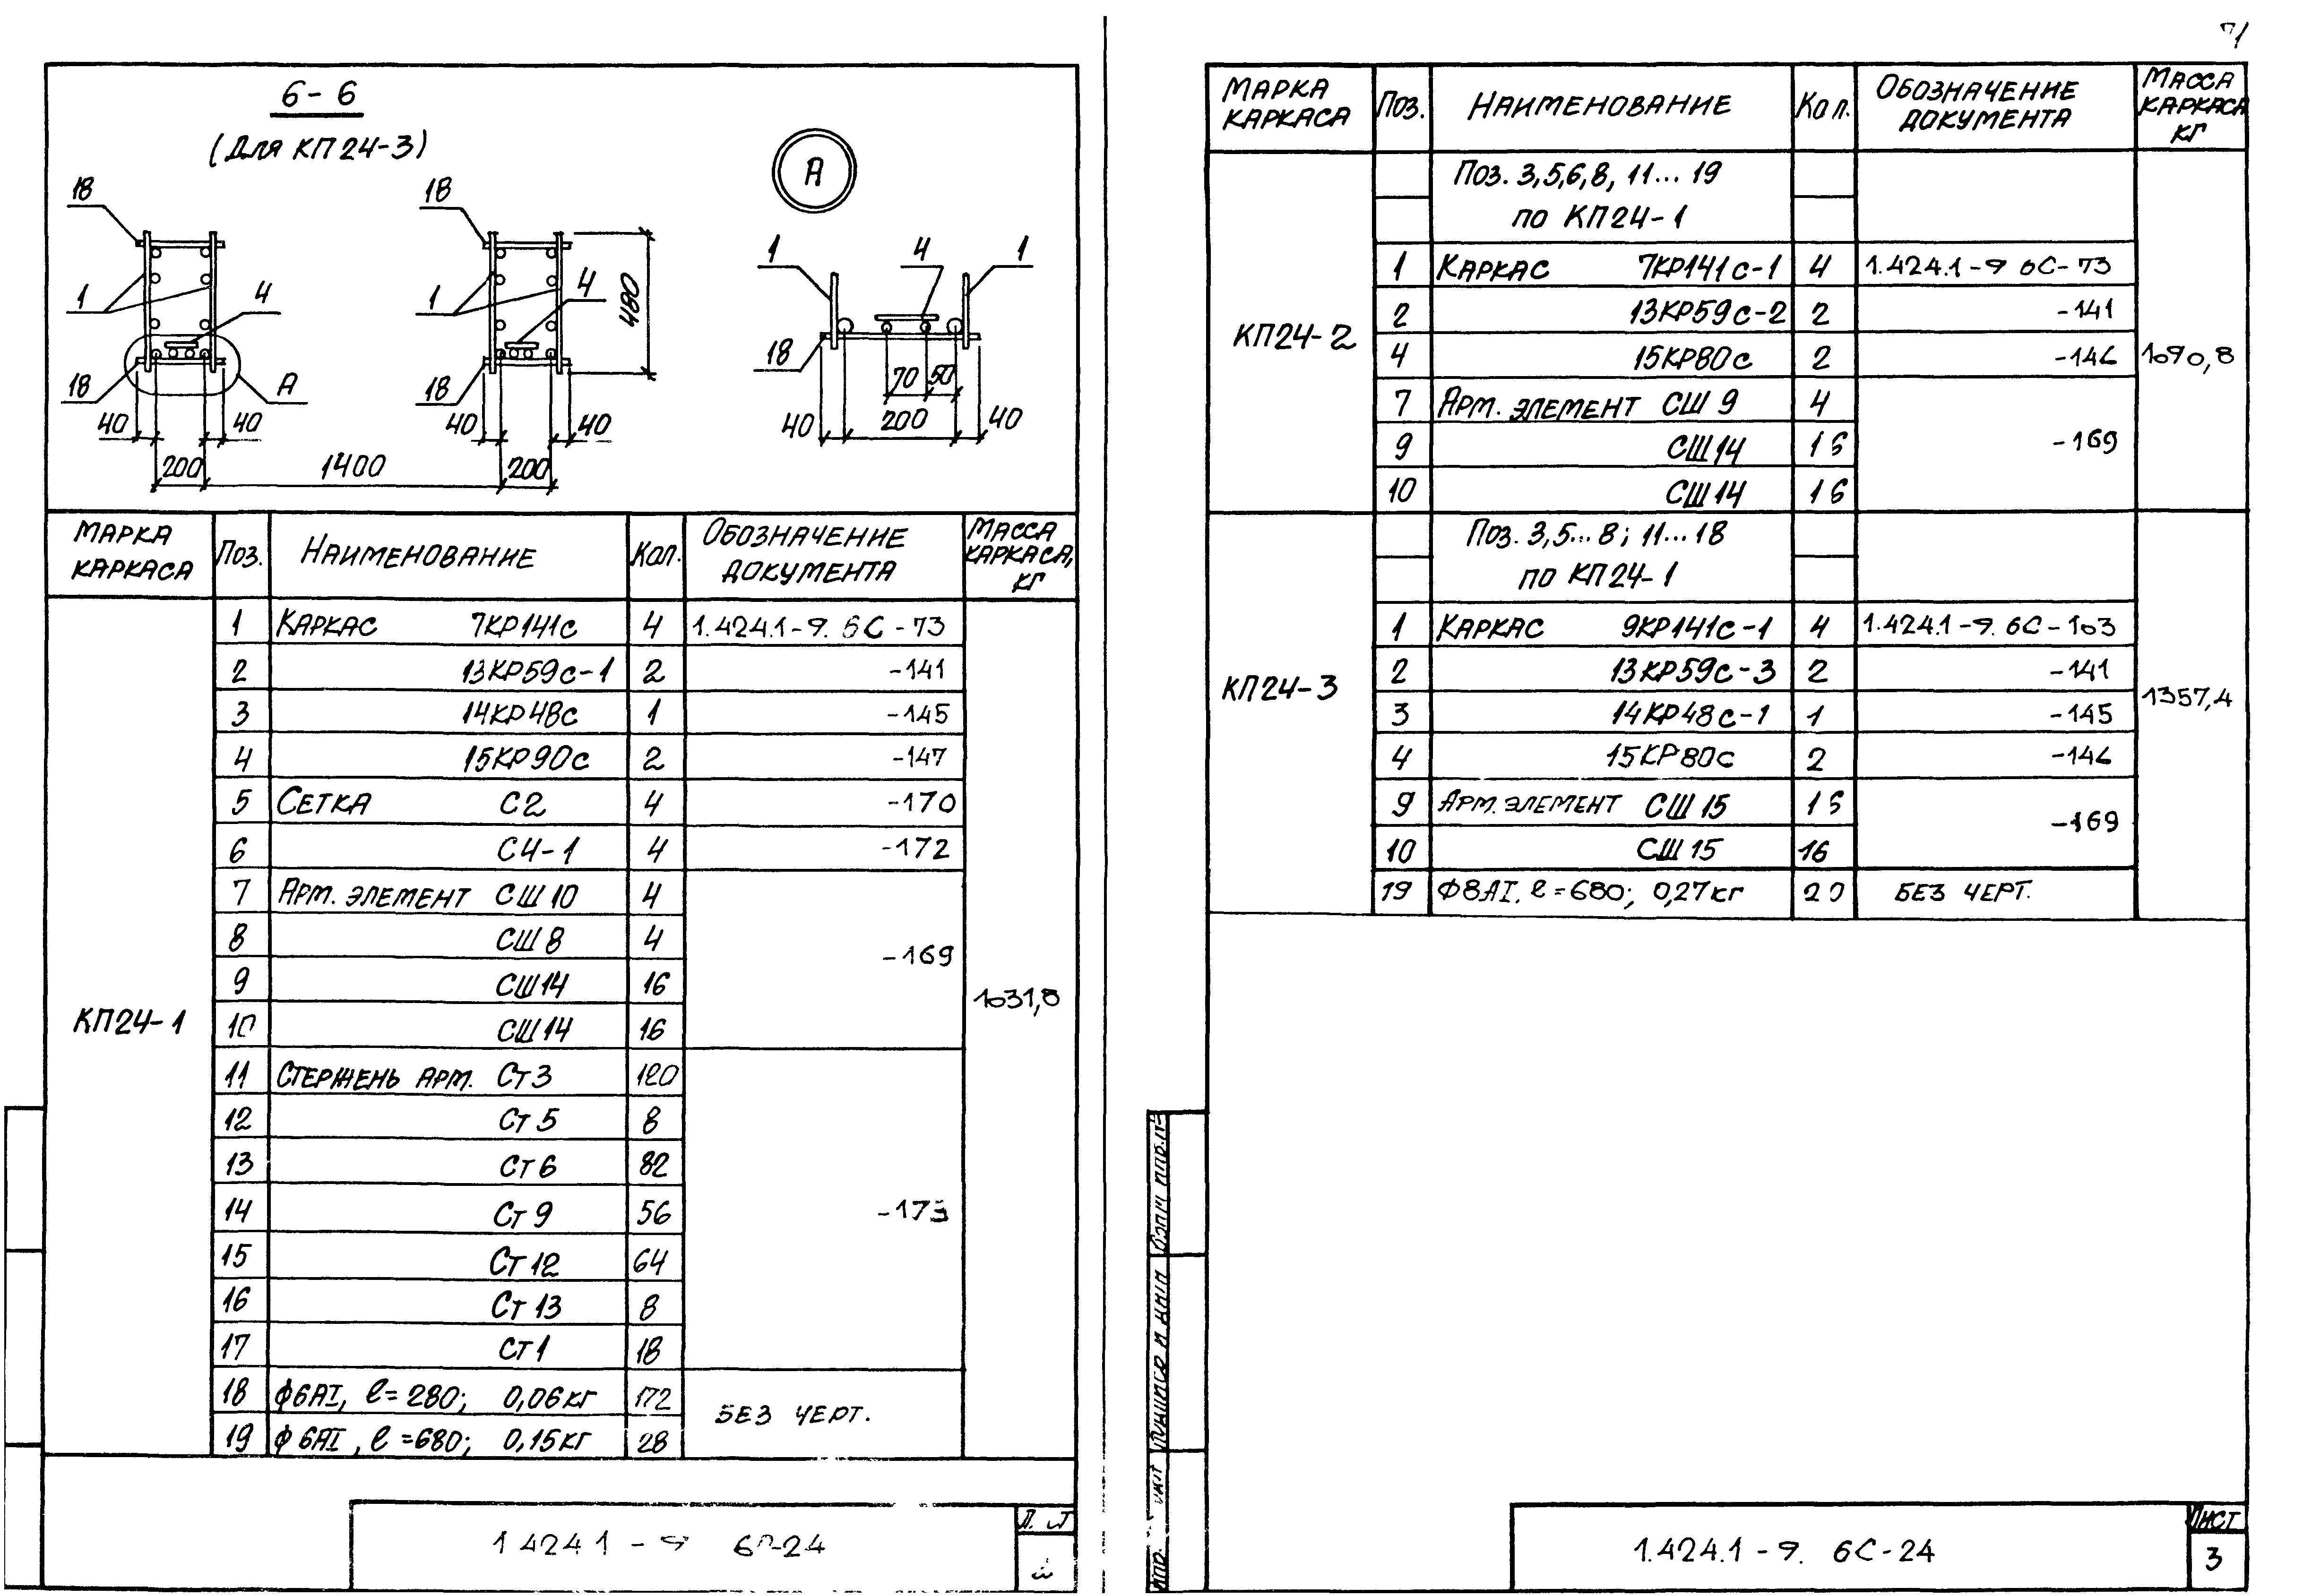 6-6
(Для КП24-3)
А
18 18
1 4 1 4 480
18 А 18
40 40 40 40
200 1400 200
1 4 1
18
70 50
40 200 40
МАРКА КАРКАСА Поз. НАИМЕНОВАНИЕ Кол. ОБОЗНАЧЕНИЕ ДОКУМЕНТА МАССА КАРКАСА, КГ
КП24-1 1031,8
1 КАРКАС 7КР141с 4 1.424.1-9. 6С-73
2 13КР59с-1 2 -141
3 14КР48с 1 -145
4 15КР90с 2 -147
5 СЕТКА С2 4 -170
6 С4-1 4 -172
7 АРМ. ЭЛЕМЕНТ СШ10 4
8 СШ8 4 -169
9 СШ14 16
10 СШ14 16
11 СТЕРЖЕНЬ АРМ. Ст3 120
12 Ст5 8
13 Ст6 82
14 Ст9 56 -173
15 Ст12 64
16 Ст13 8
17 Ст1 18
18 ϕ6АI, ℓ=280; 0,06кг 172 БЕЗ ЧЕРТ.
19 ϕ6АI, ℓ=680; 0,15кг 28
1.424.1-9 6С-24
МАРКА КАРКАСА Поз. НАИМЕНОВАНИЕ Кол. ОБОЗНАЧЕНИЕ ДОКУМЕНТА МАССА КАРКАСА КГ
КП24-2 1090,8
Поз. 3,5,6,8, 11...19
по КП24-1
1 КАРКАС 7КР141с-1 4 1.424.1-9 6С-73
2 13КР59с-2 2 -141
4 15КР80с 2 -146
7 АРМ. ЭЛЕМЕНТ СШ9 4
9 СШ14 16 -169
10 СШ14 16
КП24-3 1357,4
Поз. 3,5...8; 11...18
по КП24-1
1 КАРКАС 9КР141с-1 4 1.424.1-9. 6С-103
2 13КР59с-3 2 -141
3 14КР48с-1 1 -145
4 15КР80с 2 -146
9 АРМ. ЭЛЕМЕНТ СШ15 16 -169
10 СШ15 16
19 ϕ8АI, ℓ=680; 0,27кг 20 БЕЗ ЧЕРТ.
1.424.1-9. 6С-24
ЛИСТ
3